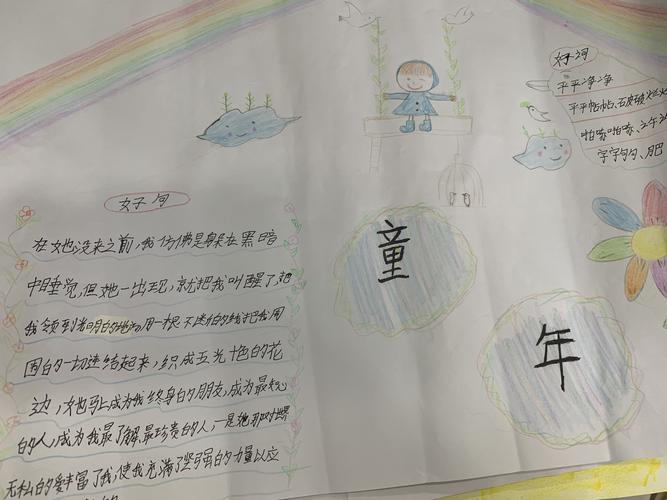 好句
在她没来之前，我仿佛是躲在黑暗
中睡觉，但她一出现，就把我叫醒了，把
我领到光明的地方用一根不断的线把我周
围的一切连结起来，织成五光十色的花
边，她马上成为我终身的朋友，成为最知心
的人，成为我最了解、最珍贵的人，是她那对世界
无私的爱丰富了我，使我充满了坚强的力量以应
童
年
好词
平平净净
平平帖帖、石皮破烂
啪嗦啪嗦、立午
字字句句、月巴